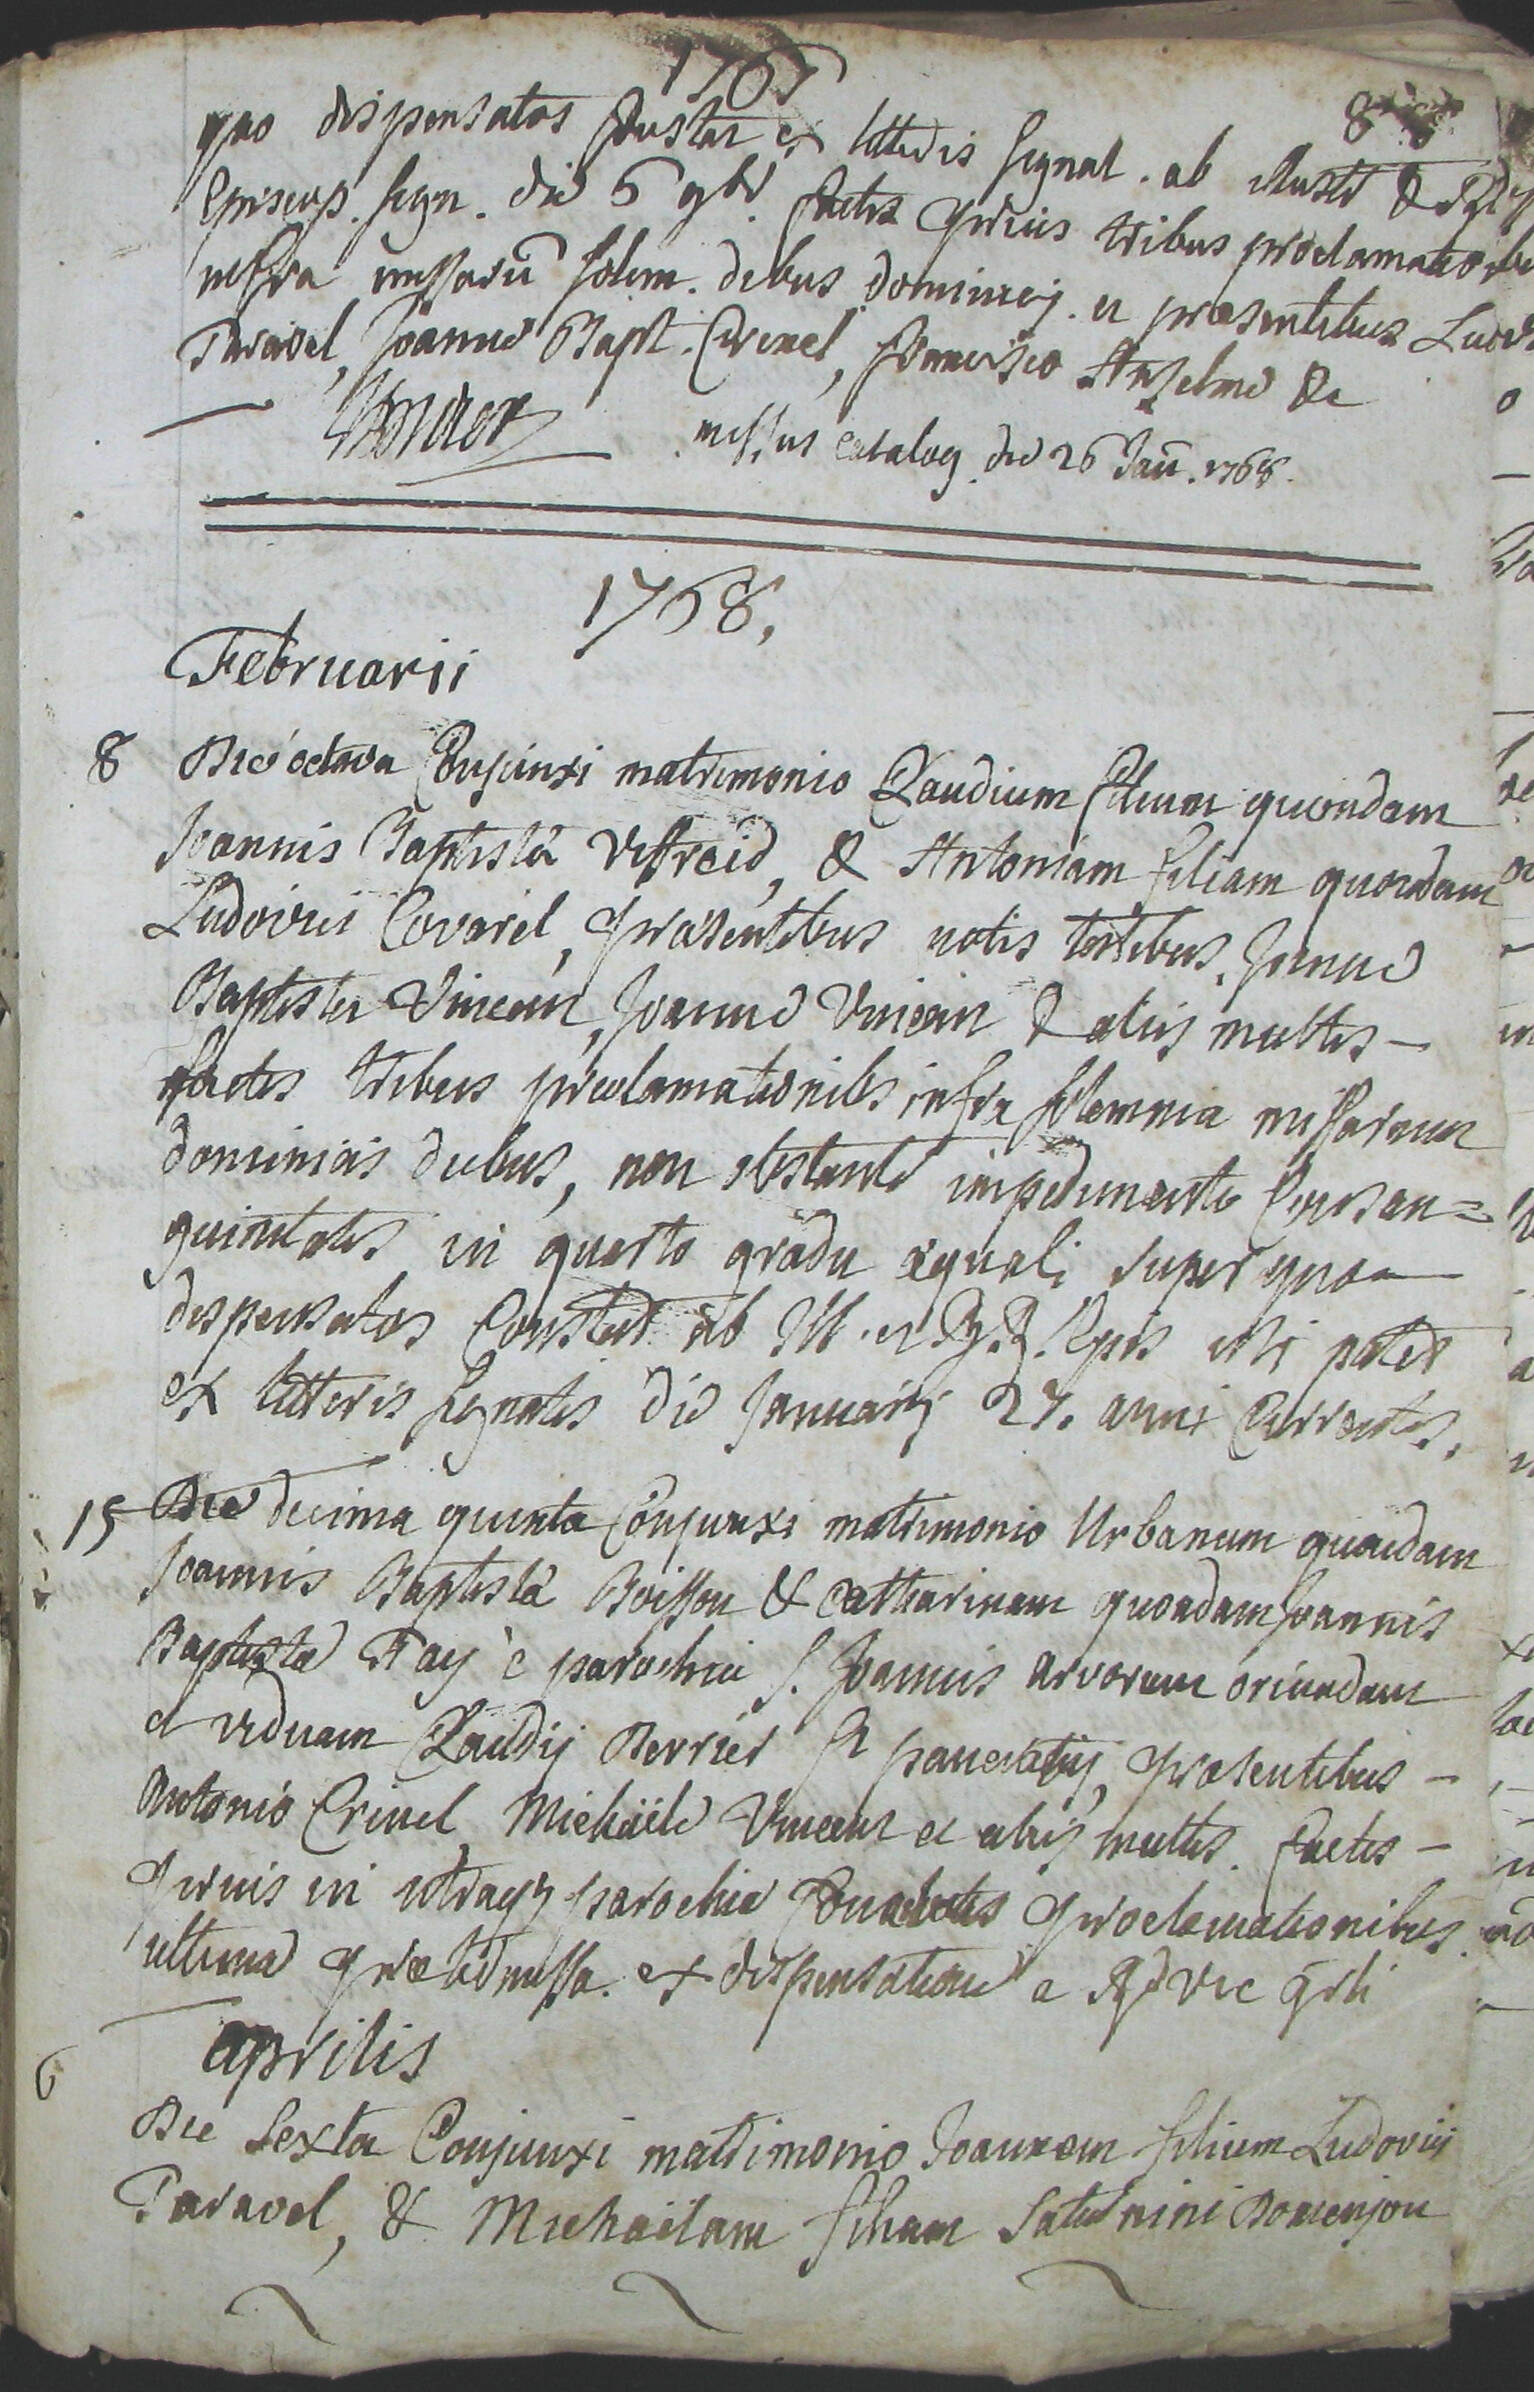 1767
quo dispensatos Constat ex litteris signat. ab illustr & Rdi
Episcop. sign. die 5 9br. factis prius tribus proclamationibus
infra missarū solem. diebus dominicis. et præsentibus Ludov
Taravel, Joanne Bapt. Crinel, francisco Anselme &c
missus catalog. die 26 Jañ. 1768.
1768.
Februarii
8 Die octava Conjunxi matrimonio Claudium filium quondam
Joannis Baptistæ Viffreid, & Antoniam filiam quondam
Ludovici Covarel, præsentibus notis testibus, Joanne
Baptista Vincent, Joanne Vincent & aliis multis –
factis tribus proclamationibs infra solemnia missarum
dominicis diebus, non obstante impedimento Consan=
guinitatis in quarto gradu æquali super quo
dispensatos Constat ab Ill. et R. R. Epis. uti patet
ex litteris signatis die Januarij 27. anni Currentis.
15 Die decima quinta Conjunxi matrimonio Urbanum quondam
Joannis Baptistæ Boisson & Catharinam quondam Joannis
Baptistæ Fay è parochia S. Joannis arvorum oriundam
et viduam Claudij Berrier St pancratij, præsentibus –
Antonio Crinel, Michaële Vincent et aliis multis. factis –
prius in utraq parochia Consuetis proclamationibus.
ultima prætermissa. ex dispensatione a Rd vic gñli
aprilis
6
Die sexta Conjunxi matrimonio Joannem filium Ludovici
Taravel, & Michaëlam filiam Saturnini Domenjon